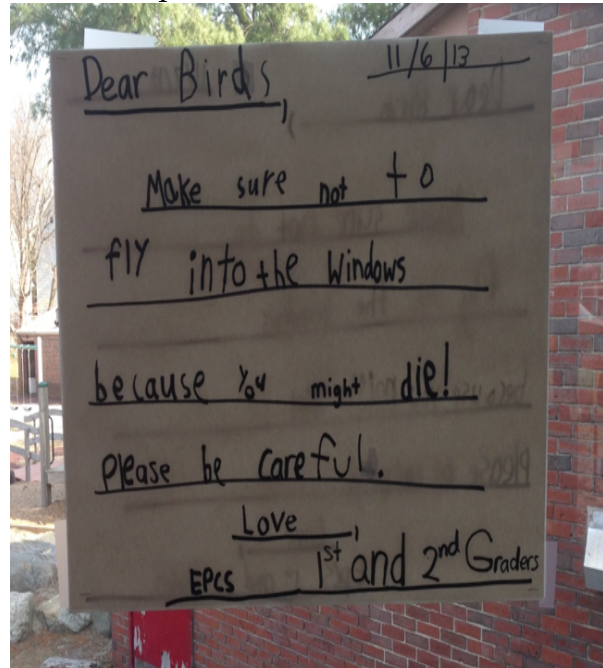 Dear Birds, 11/6/13
Make sure not to
fly into the Windows
because you might die!
please be careful.
Love,
EPCS 1st and 2nd Graders